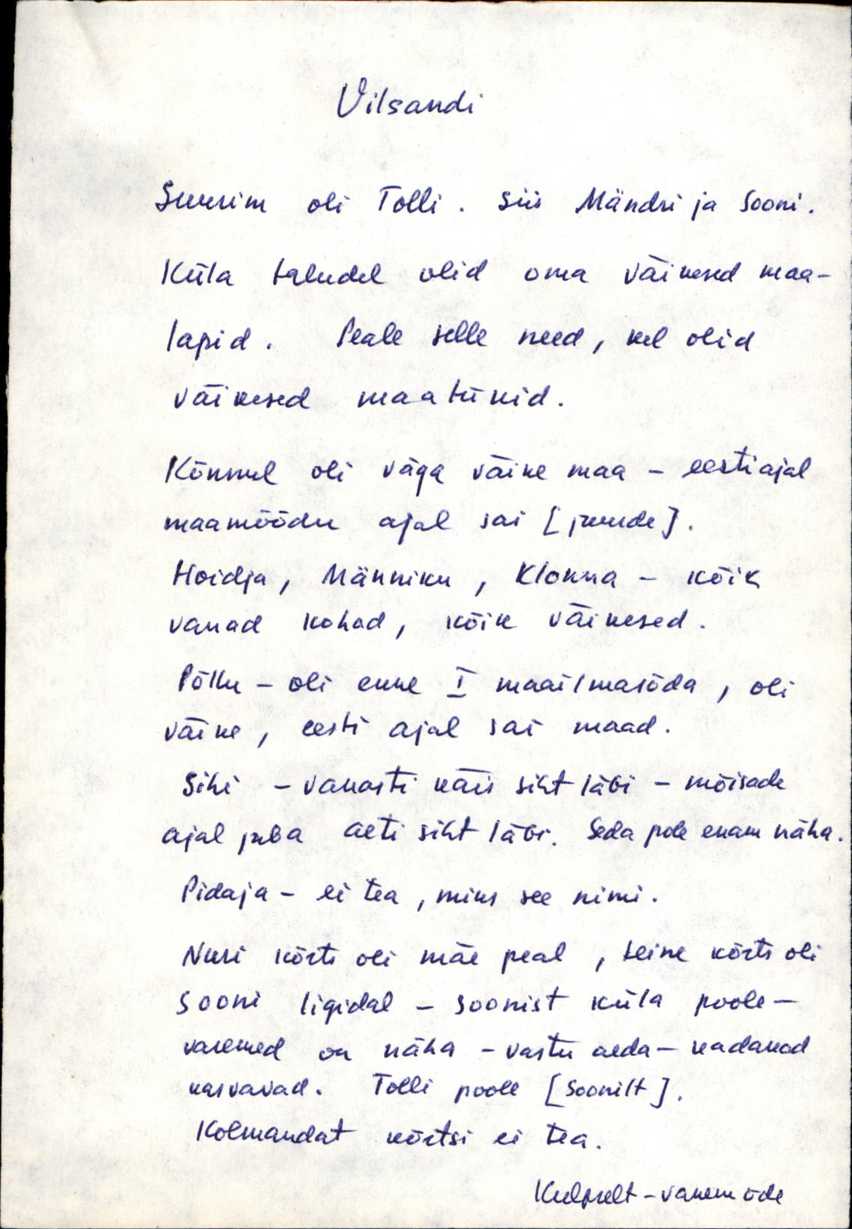 Vilsandi
Suurim oli Tolli. Siis Mändri ja Sooni.
Küla taludel olid oma väikesed maa-
lapid. Peale selle need, kel olid
väikesed maatükid.
Kõnnul oli väga väike maa – eesti ajal
maamõõdu ajal sai [juurde].
Hoidja, Männiku, Klonna – kõik
vanad kohad, kõik väikesed.
Põllu – oli enne I maailmasõda, oli
väike, eesti ajal sai maad.
Sihi – vanasti käis siht läbi – mõisade
ajal juba aeti siht läbi. Seda pole enam näha.
Pidaja – ei tea, miks see nimi.
Nuri kõrts oli mäe peal, teine kõrts oli
Sooni ligidal – Soonist küla poole –
varemed on näha – vastu aeda – kadakad
kasvavad. Tolli poole [Soonilt].
Kolmandat kõrtsi ei tea.
vanem õde